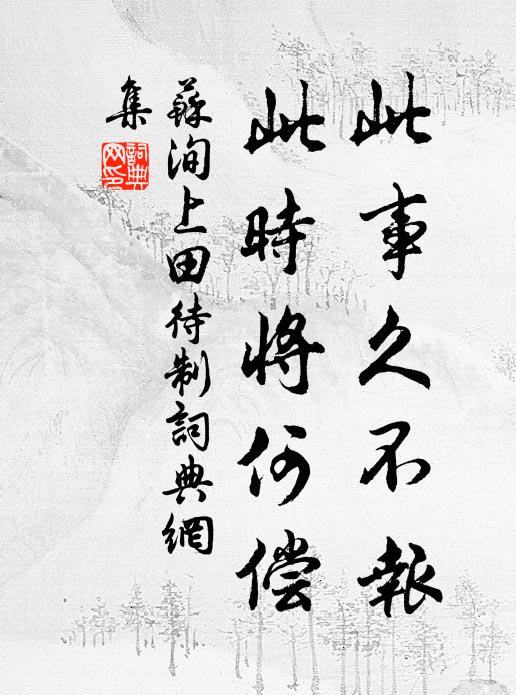 此事久不報
此時將何償
蘇洵上田待制詞典網
集
詞典網印